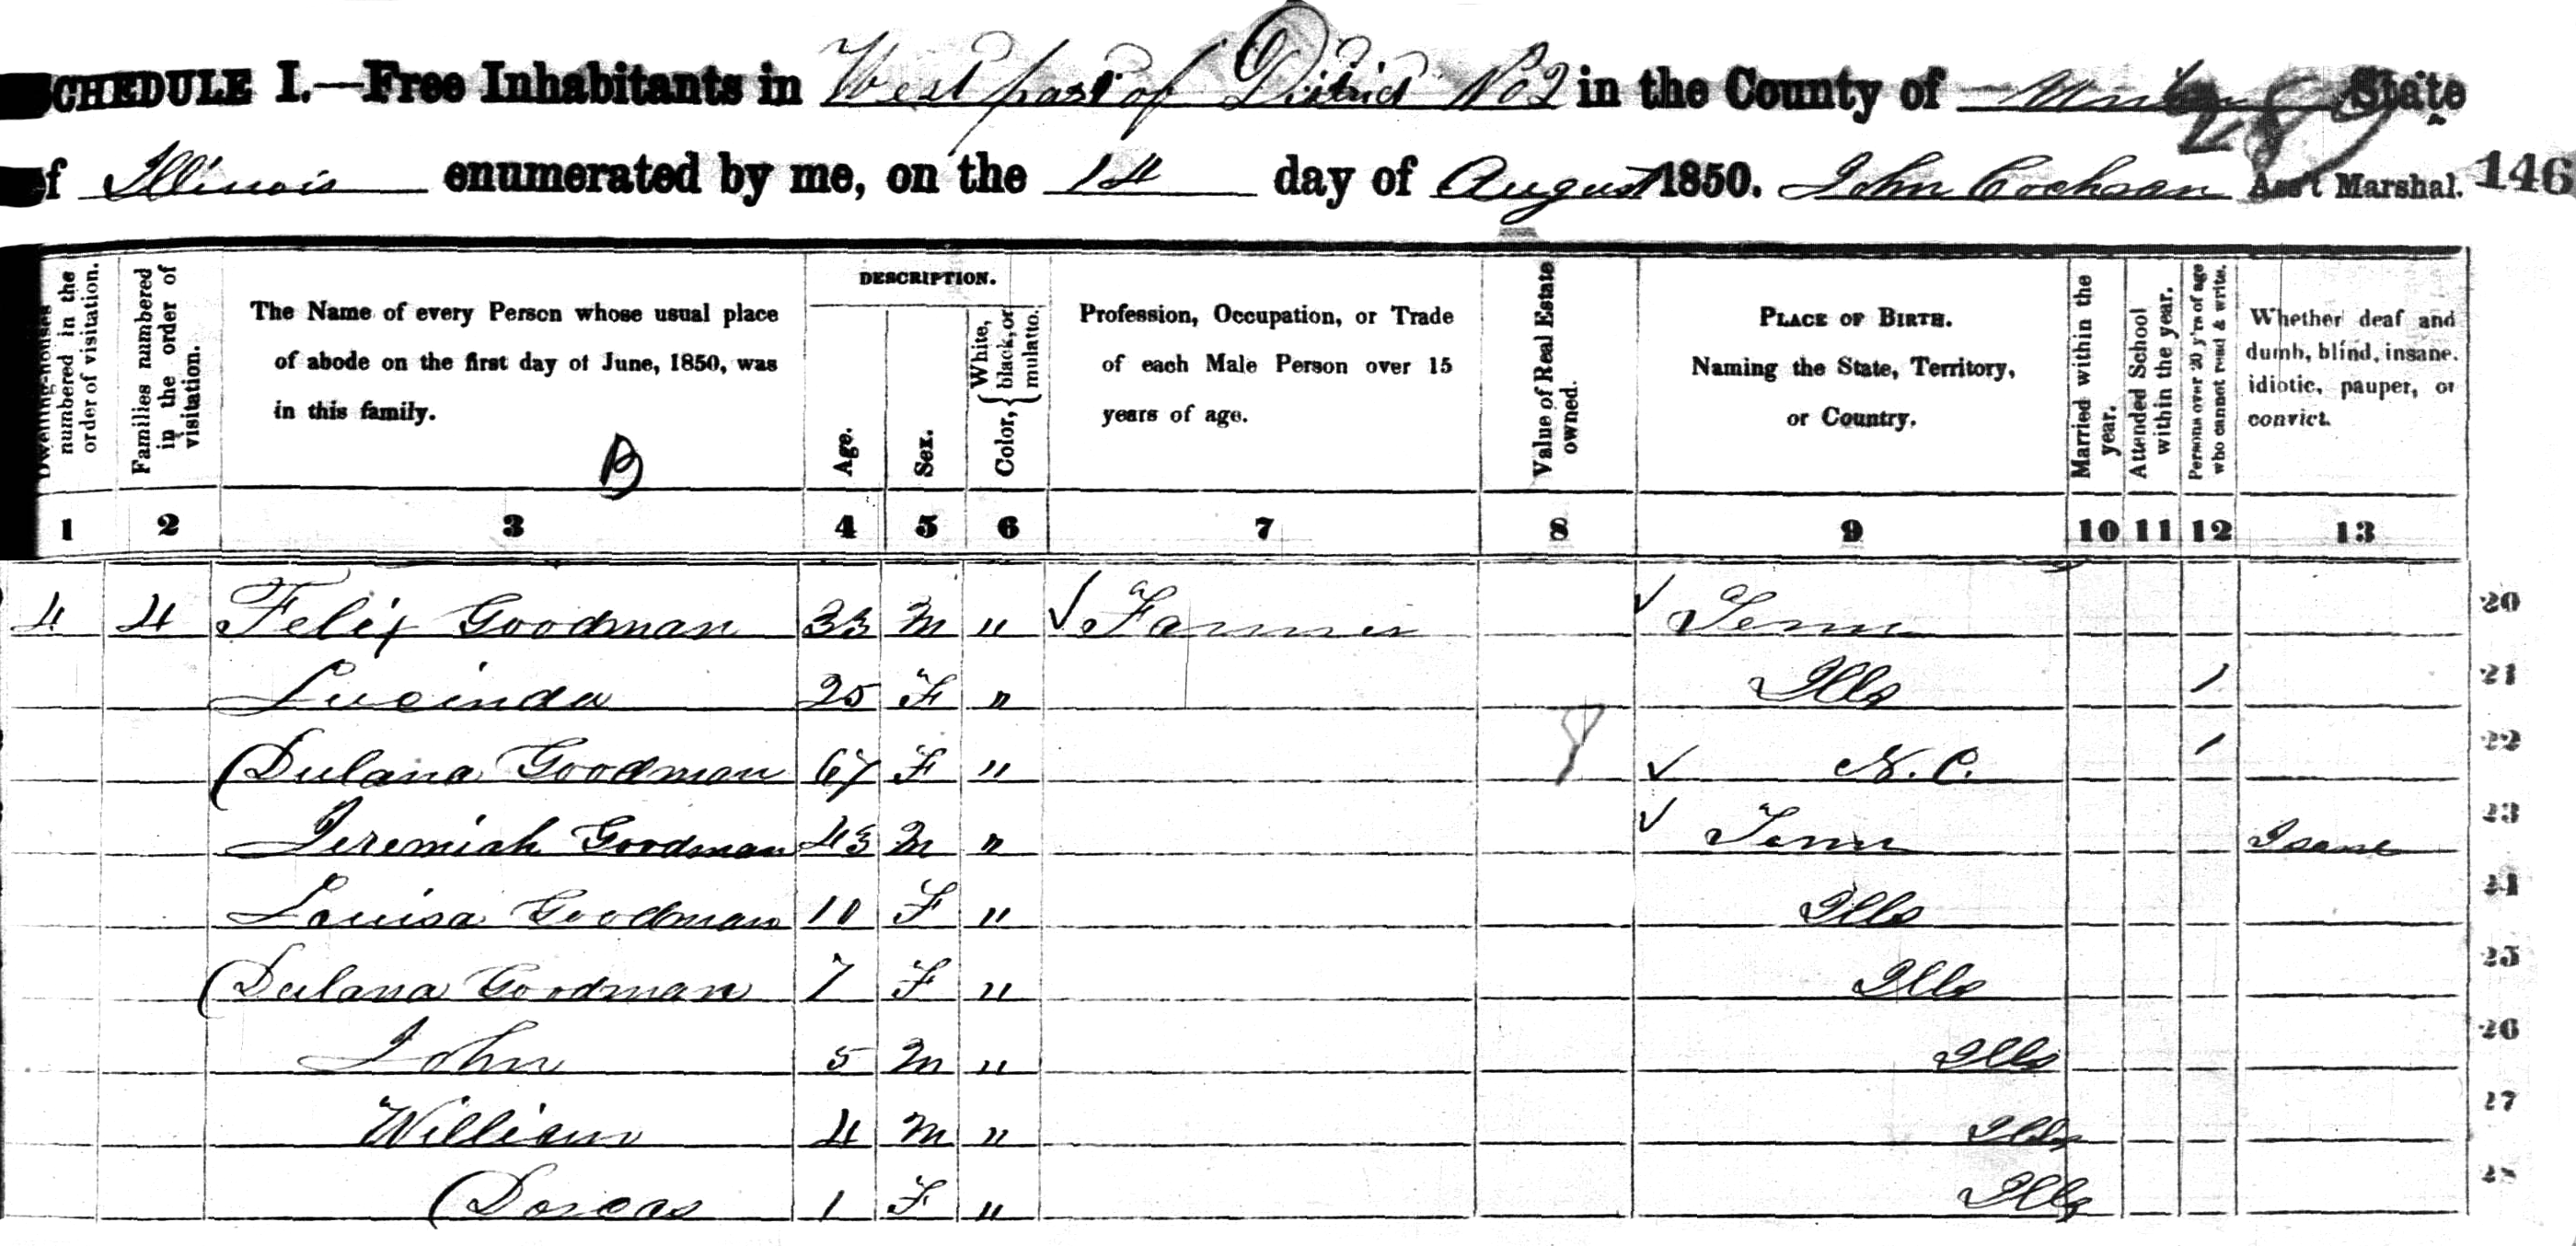 SCHEDULE I.—Free Inhabitants in West part of District No 2 in the County of Union State
of Illinois enumerated by me, on the 1st day of August 1850. John Cochran Ass't Marshal. 146
Dwelling-houses numbered in the order of visitation.
Families numbered in the order of visitation.
The Name of every Person whose usual place of abode on the first day of June, 1850, was in this family.
DESCRIPTION.
Age.
Sex.
Color, { White, black, or mulatto.
Profession, Occupation, or Trade of each Male Person over 15 years of age.
Value of Real Estate owned.
PLACE OF BIRTH. Naming the State, Territory, or Country.
Married within the year.
Attended School within the year.
Persons over 20 y'rs of age who cannot read & write.
Whether deaf and dumb, blind, insane, idiotic, pauper, or convict.
1 2 3 4 5 6 7 8 9 10 11 12 13
4 4 Felix Goodman 33 M " ✓ Farmer ✓ Tenn 20
Lucinda 25 F " Ills / 21
Dulana Goodman 67 F " ✓ N. C. / 22
Jeremiah Goodman 43 M " ✓ Tenn Isane 23
Louisa Goodman 10 F " Ills 24
Dulana Goodman 7 F " Ills 25
John 5 M " Ills 26
William 4 M " Ills 27
Dorcas 1 F " Ills 28